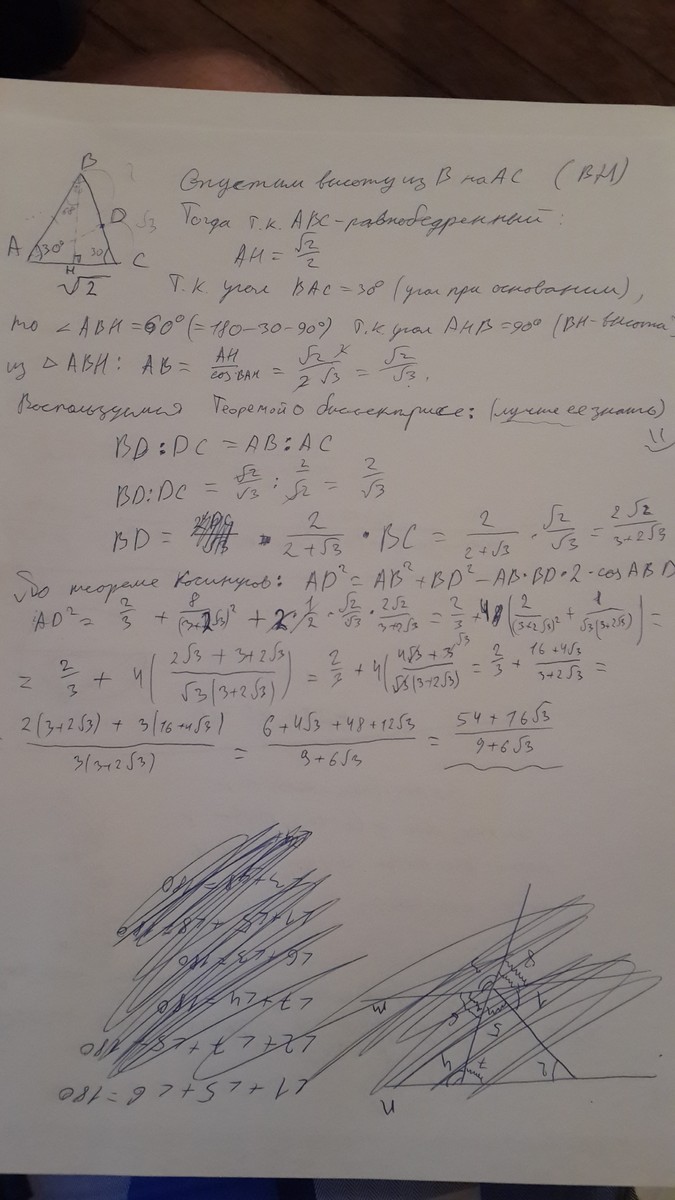 B
D
√3
A 30° 30 C
H
√2
Опустим высоту из B на AC (BH)
Тогда т.к. ABC-равнобедренный:
AH = √2/2
Т.к. угол BAC = 30° (угол при основании),
то ∠ABH = 60° (= 180-30-90°) Т.к. угол AHB = 90° (BH-высота)
из △ABH: AB = AH/cos BAH = √2 2/2 √3 = √2/√3.
Воспользуемся Теоремой о биссектрисе: (лучше ее знать)
BD:DC = AB:AC
BD:DC = √2/√3 : 2/√2 = 2/√3
BD = 2/(2+√3) · BC = 2/(2+√3) · √2/√3 = 2√2/(3+2√3)
По теореме Косинусов: AD² = AB² + BD² - AB·BD·2·cos ABD
AD² = 2/3 + 8/(3+2√3)² + 2·1/2·√2/√3·2√2/(3+2√3) = 2/3 + 4(2/(3+2√3)² + 1/(√3(3+2√3))) =
= 2/3 + 4((2√3 + 3+2√3)/(√3(3+2√3))) = 2/3 + 4((4√3 + 3)/(√3(3+2√3))) = 2/3 + (16+4√3)/(3+2√3) =
(2(3+2√3) + 3(16+4√3))/(3(3+2√3)) = (6+4√3+48+12√3)/(9+6√3) = (54+16√3)/(9+6√3)
∠1+∠5+∠6=180
∠2+∠7+∠8=180
∠7+∠4=180
∠6+∠3=180